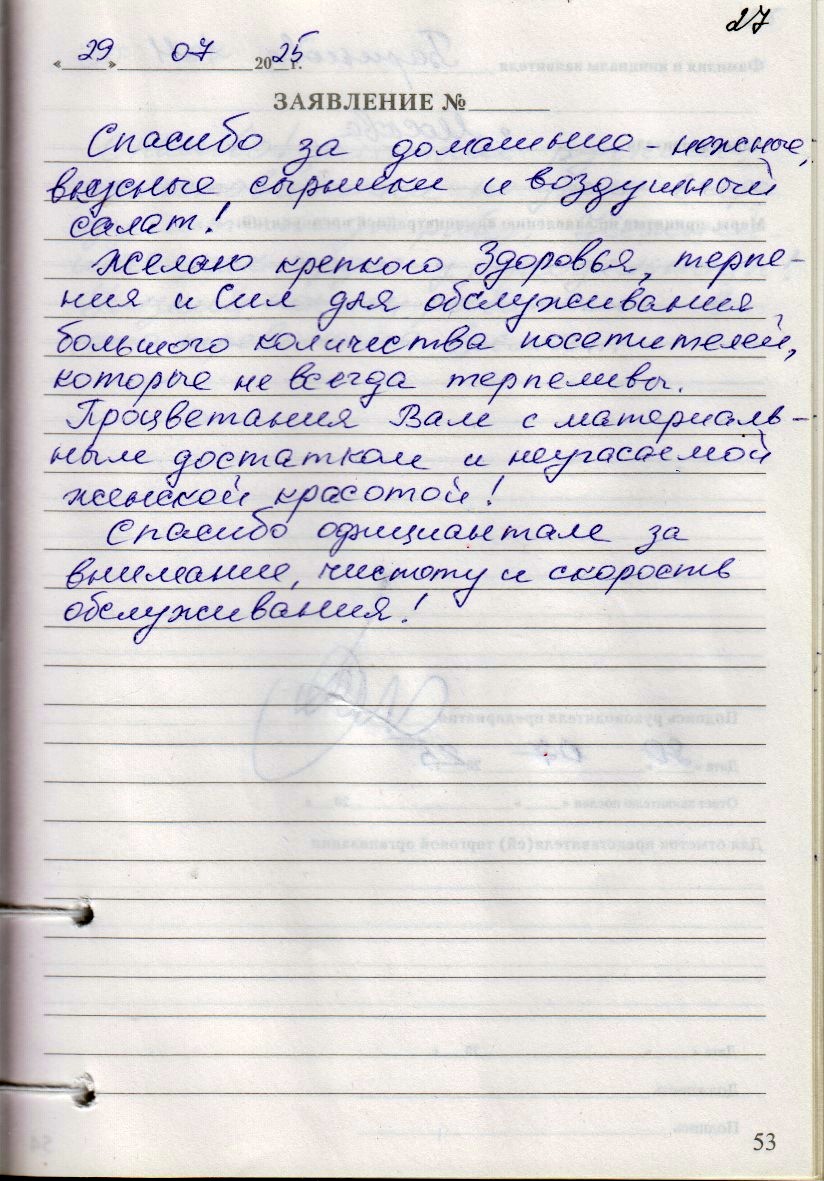 27
« 29 » 07 2025 г.
ЗАЯВЛЕНИЕ №
Спасибо за домашние - нежные,
вкусные сырники и воздушный
салат!
Желаю крепкого Здоровья, терпе-
ния и Сил для обслуживания
большого количества посетителей,
которые не всегда терпеливы.
Процветания Вам с материаль-
ным достатком и неугасаемой
женской красотой!
Спасибо официантам за
внимание, чистоту и скорость
обслуживания!
53